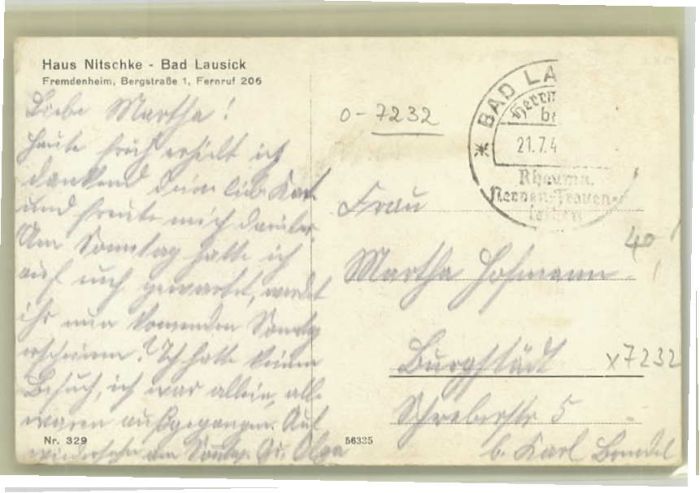 Haus Nitschke - Bad Lausick
Fremdenheim, Bergstraße 1, Fernruf 206
Liebe Martha!
Heute früh erhielt ich
dankend deine liebe Karte
und freute mich darüber.
Am Sonntag hatte ich
auf euch gewartet, werdet
ihr nun kommenden Sonntag
erscheinen? Ich hatte keinen
Besuch, ich war allein, alle
waren ausgegangen. Auf
wiedersehn am Sonntag. Olga
Nr. 329
56335
o-7232
BAD LA
21.7.4
Rheuma
Nerven-Frauen-
leiden
Frau
Martha Hofmann
40
Burgstädt
x7232
Schreberstr 5
b. Karl